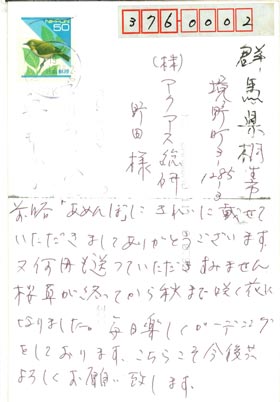 NIPPON
50
376-0002
群馬県桐生市
境野町3-1285-3
(株)アクアス総研
野田 様
前略 あめんぼに きれいに載せて
いただきましてありがとうございます
又何冊も送っていただきすみません
桜草が終ってから秋まで咲く花に
なりました。毎日楽しくガーデニング
をしております。こちらこそ今後共
よろしくお願い致します。